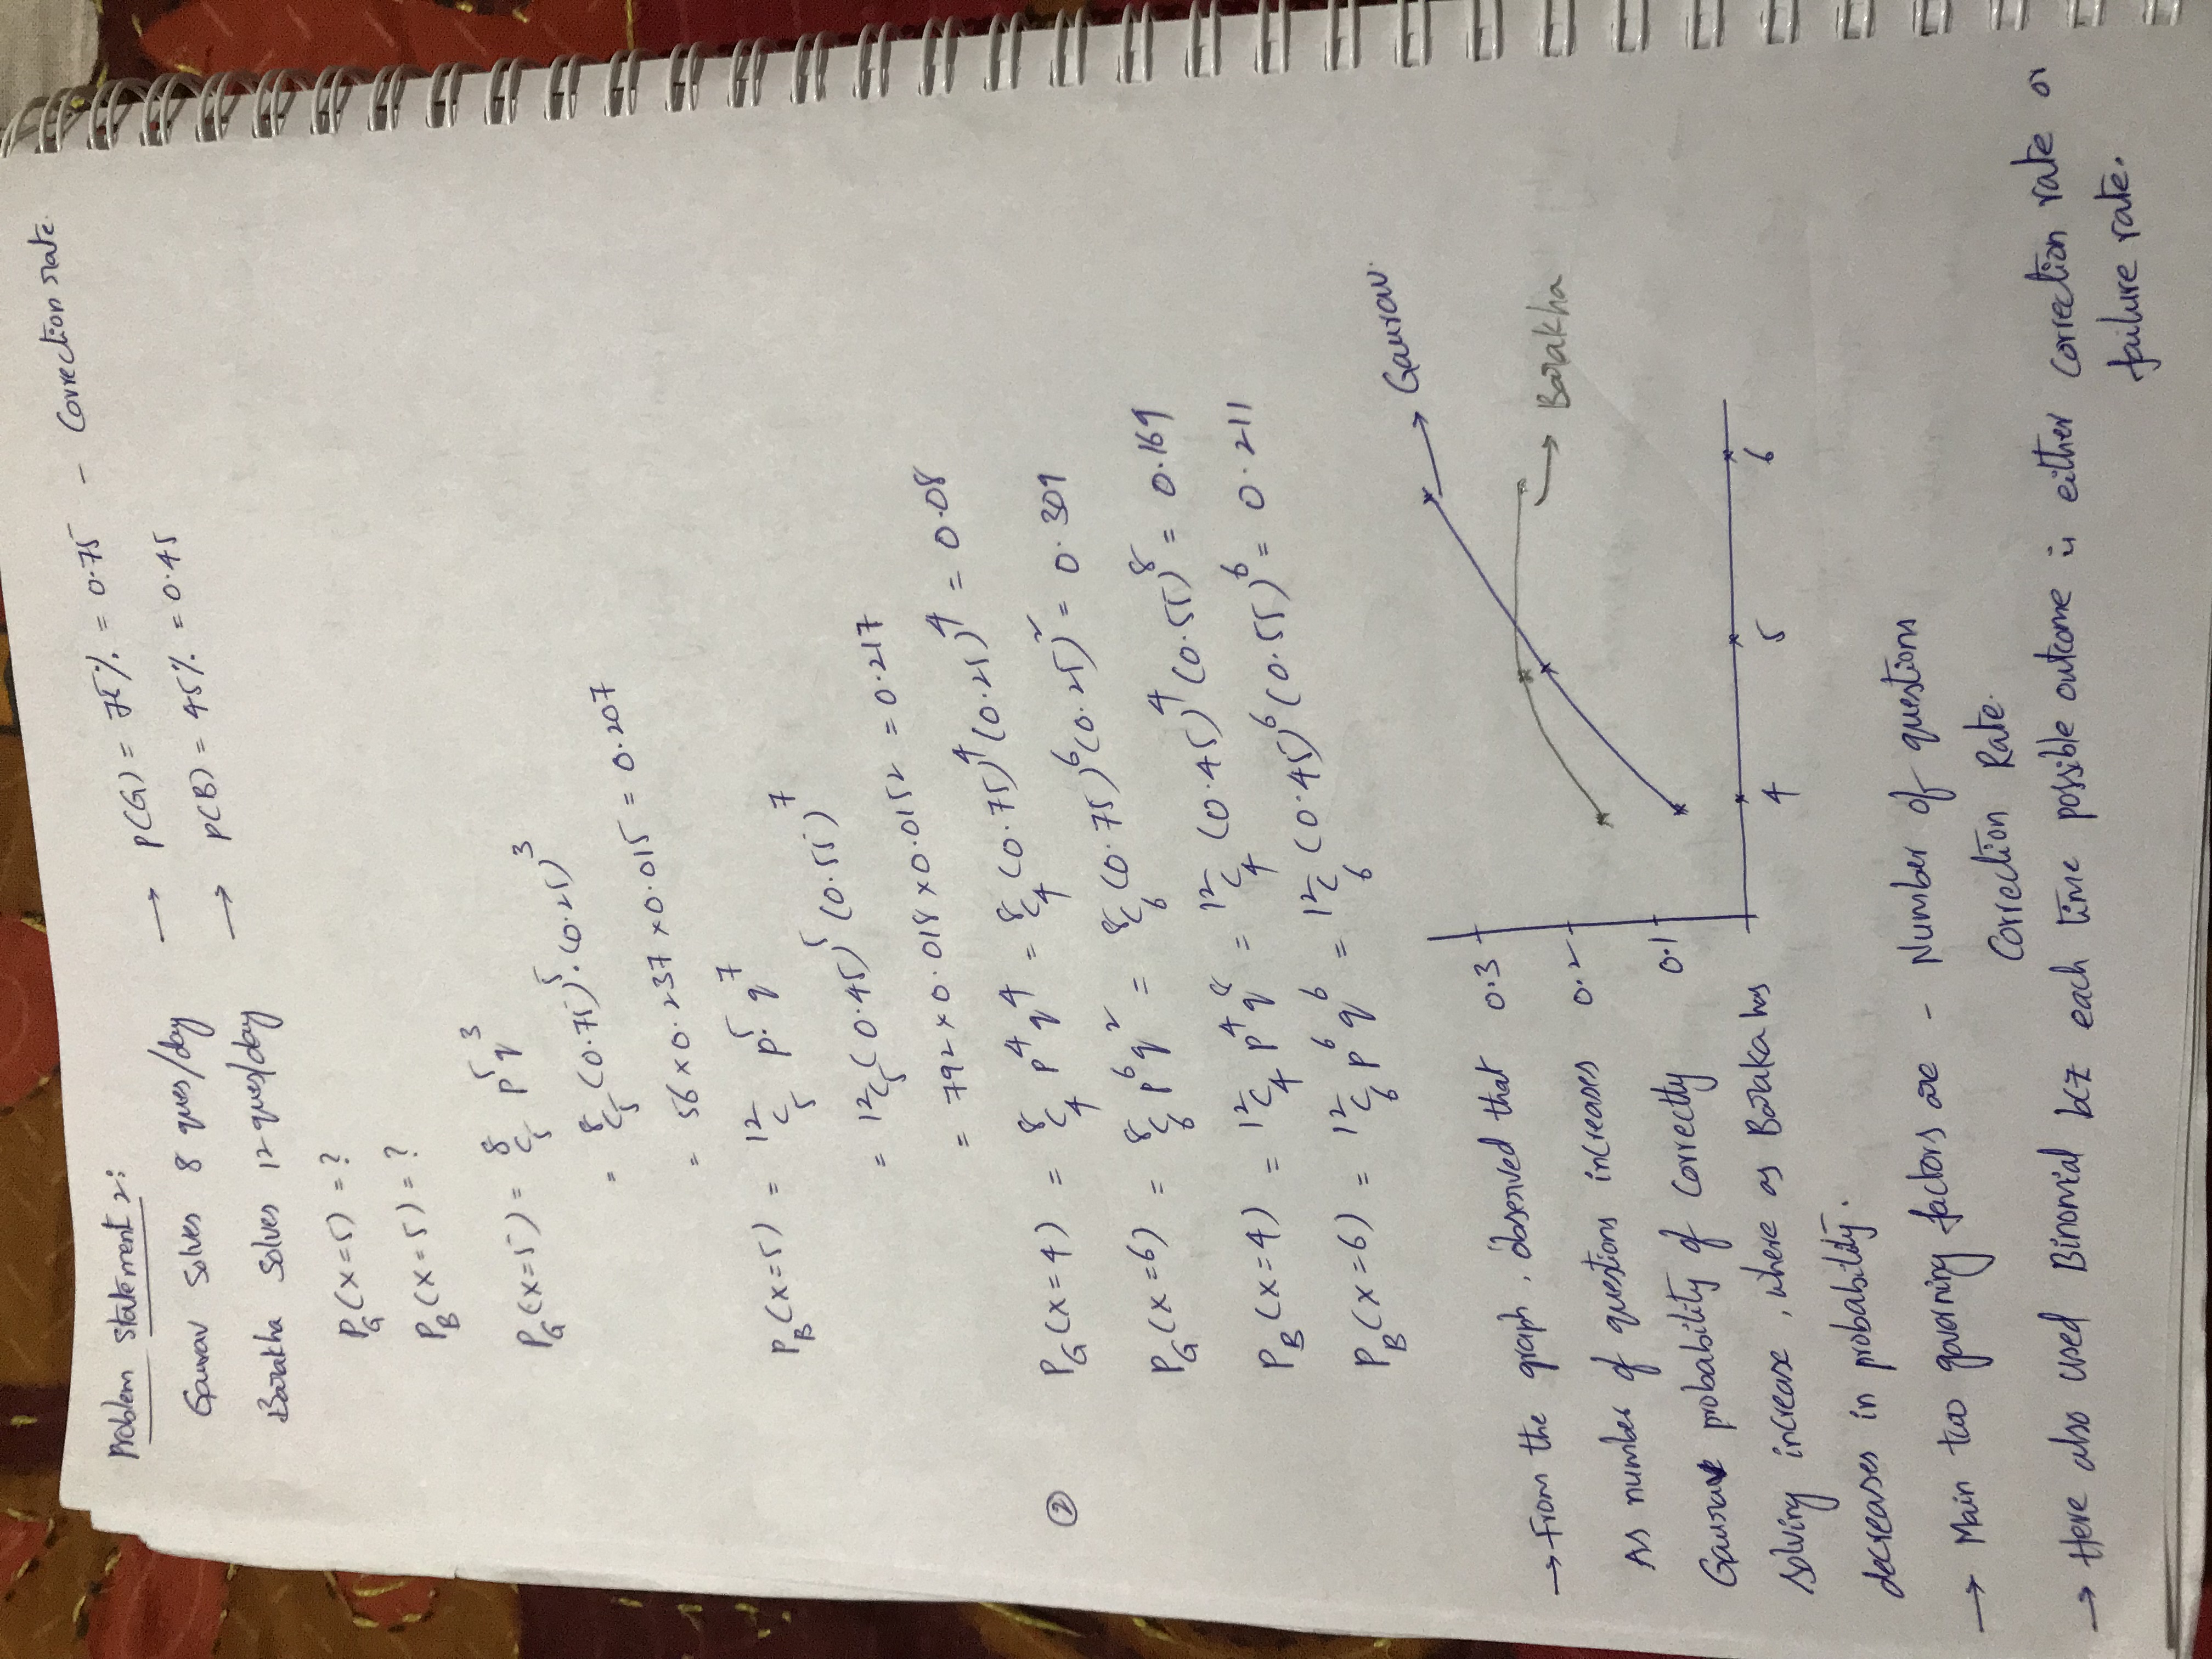 Problem Statement 2:
Gaurav Solves 8 ques/day → P(G) = 75% = 0.75 - Correction rate.
Barakha Solves 12 ques/day → P(B) = 45% = 0.45
P_G(X=5) = ?
P_B(X=5) = ?
P_G(X=5) = ⁸C₅ p⁵q³
= ⁸C₅ (0.75)⁵·(0.25)³
= 56 × 0.237 × 0.015 = 0.207
P_B(X=5) = ¹²C₅ p⁵ q⁷
= ¹²C₅ (0.45)⁵ (0.55)⁷
= 792 × 0.018 × 0.0152 = 0.217
② P_G(X=4) = ⁸C₄ p⁴q⁴ = ⁸C₄ (0.75)⁴ (0.25)⁴ = 0.08
P_G(X=6) = ⁸C₆ p⁶q² = ⁸C₆ (0.75)⁶ (0.25)² = 0.309
P_B(X=4) = ¹²C₄ p⁴q⁸ = ¹²C₄ (0.45)⁴ (0.55)⁸ = 0.169
P_B(X=6) = ¹²C₆ p⁶q⁶ = ¹²C₆ (0.45)⁶ (0.55)⁶ = 0.211
→ From the graph, observed that
As number of questions increases
Gaurav probability of Correctly
solving increase, where as Baraka has
decreases in probability.
0.3
0.2
0.1
4 5 6
→ Gaurav.
→ Barakha
→ Main two governing factors are - Number of questions
Correction Rate.
→ Here also used Binomial bcz each time possible outcome is either correction rate or
failure rate.